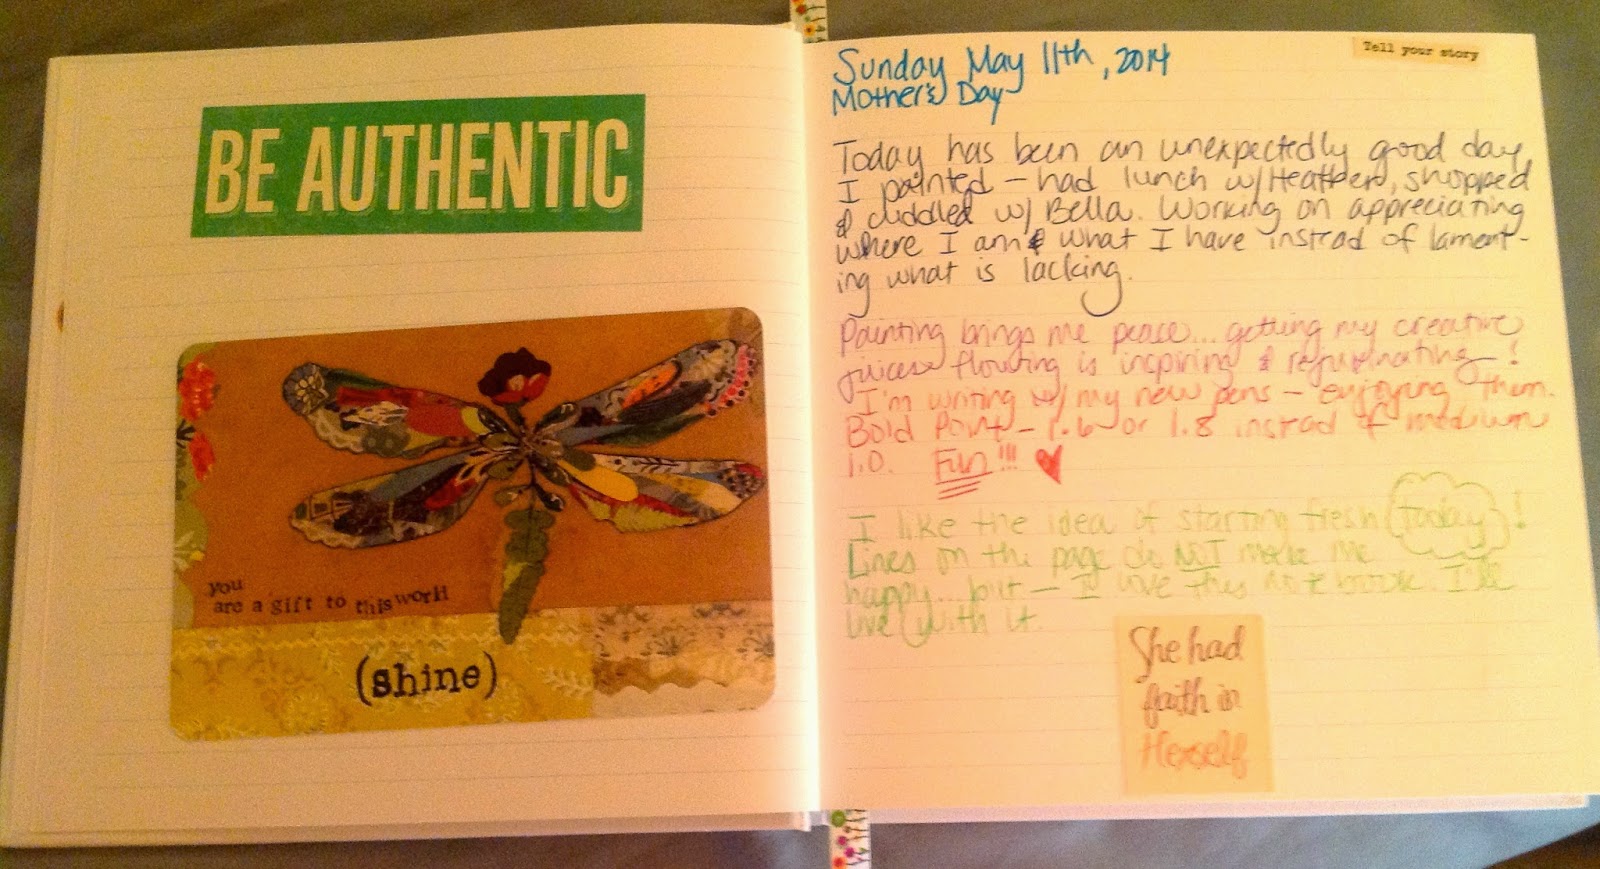 BE AUTHENTIC
you
are a gift to this world
(shine)
Tell your story
Sunday May 11th, 2014
Mother's Day
Today has been an unexpectedly good day.
I painted – had lunch w/ Heather, shopped
& cuddled w/ Bella. Working on appreciating
where I am & what I have instead of lament-
ing what is lacking.
Painting brings me peace... getting my creative
juices flowing is inspiring & rejuvinating – !
I'm writing w/ my new pens – enjoying them.
Bold Point – 1.6 or 1.8 instead of medium
1.0. Fun!!!
I like the idea of starting fresh today!
Lines on the page do NOT make me
happy... but – I love this notebook. I'll
live with it.
She had
faith in
Herself